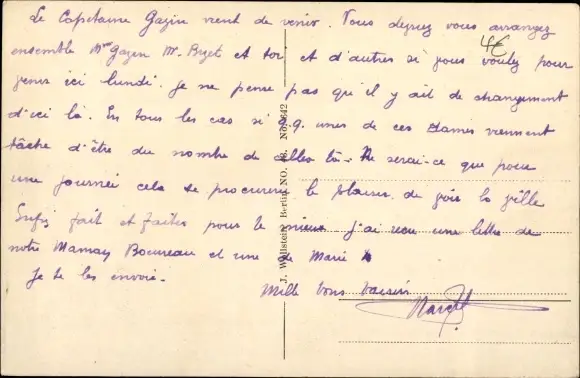 Le Capitaine Gazin vient de venir. Vous devriez vous arranger
ensemble Mme Gazin Mr. et toi et d'autres si vous voulez pour
venir ici lundi. Je ne pense pas qu'il y ait de changement
d'ici là. En tous les cas si q.q. unes de ces dames viennent
tâche d'être du nombre de celles là. Ne serait-ce que pour
une journée cela te procurera le plaisir de voir la ville
Enfin fait et faites pour le mieux j'ai reçu une lettre de
notre Maman et une de Marie
Je te les envoie.
Mille bons baisers
4€
J. Wollstein, Berlin NO. 43. No.